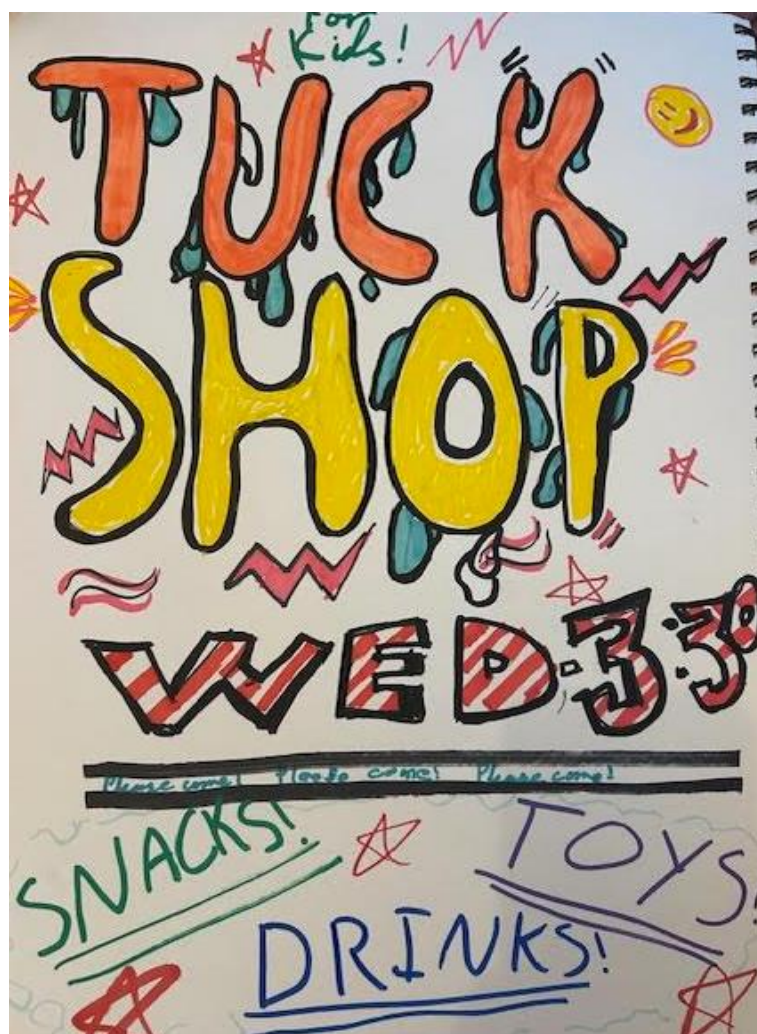 For
Kids!
TUCK
SHOP
WED·3:30
Please come! Please come! Please come!
SNACKS!
TOYS!
DRINKS!